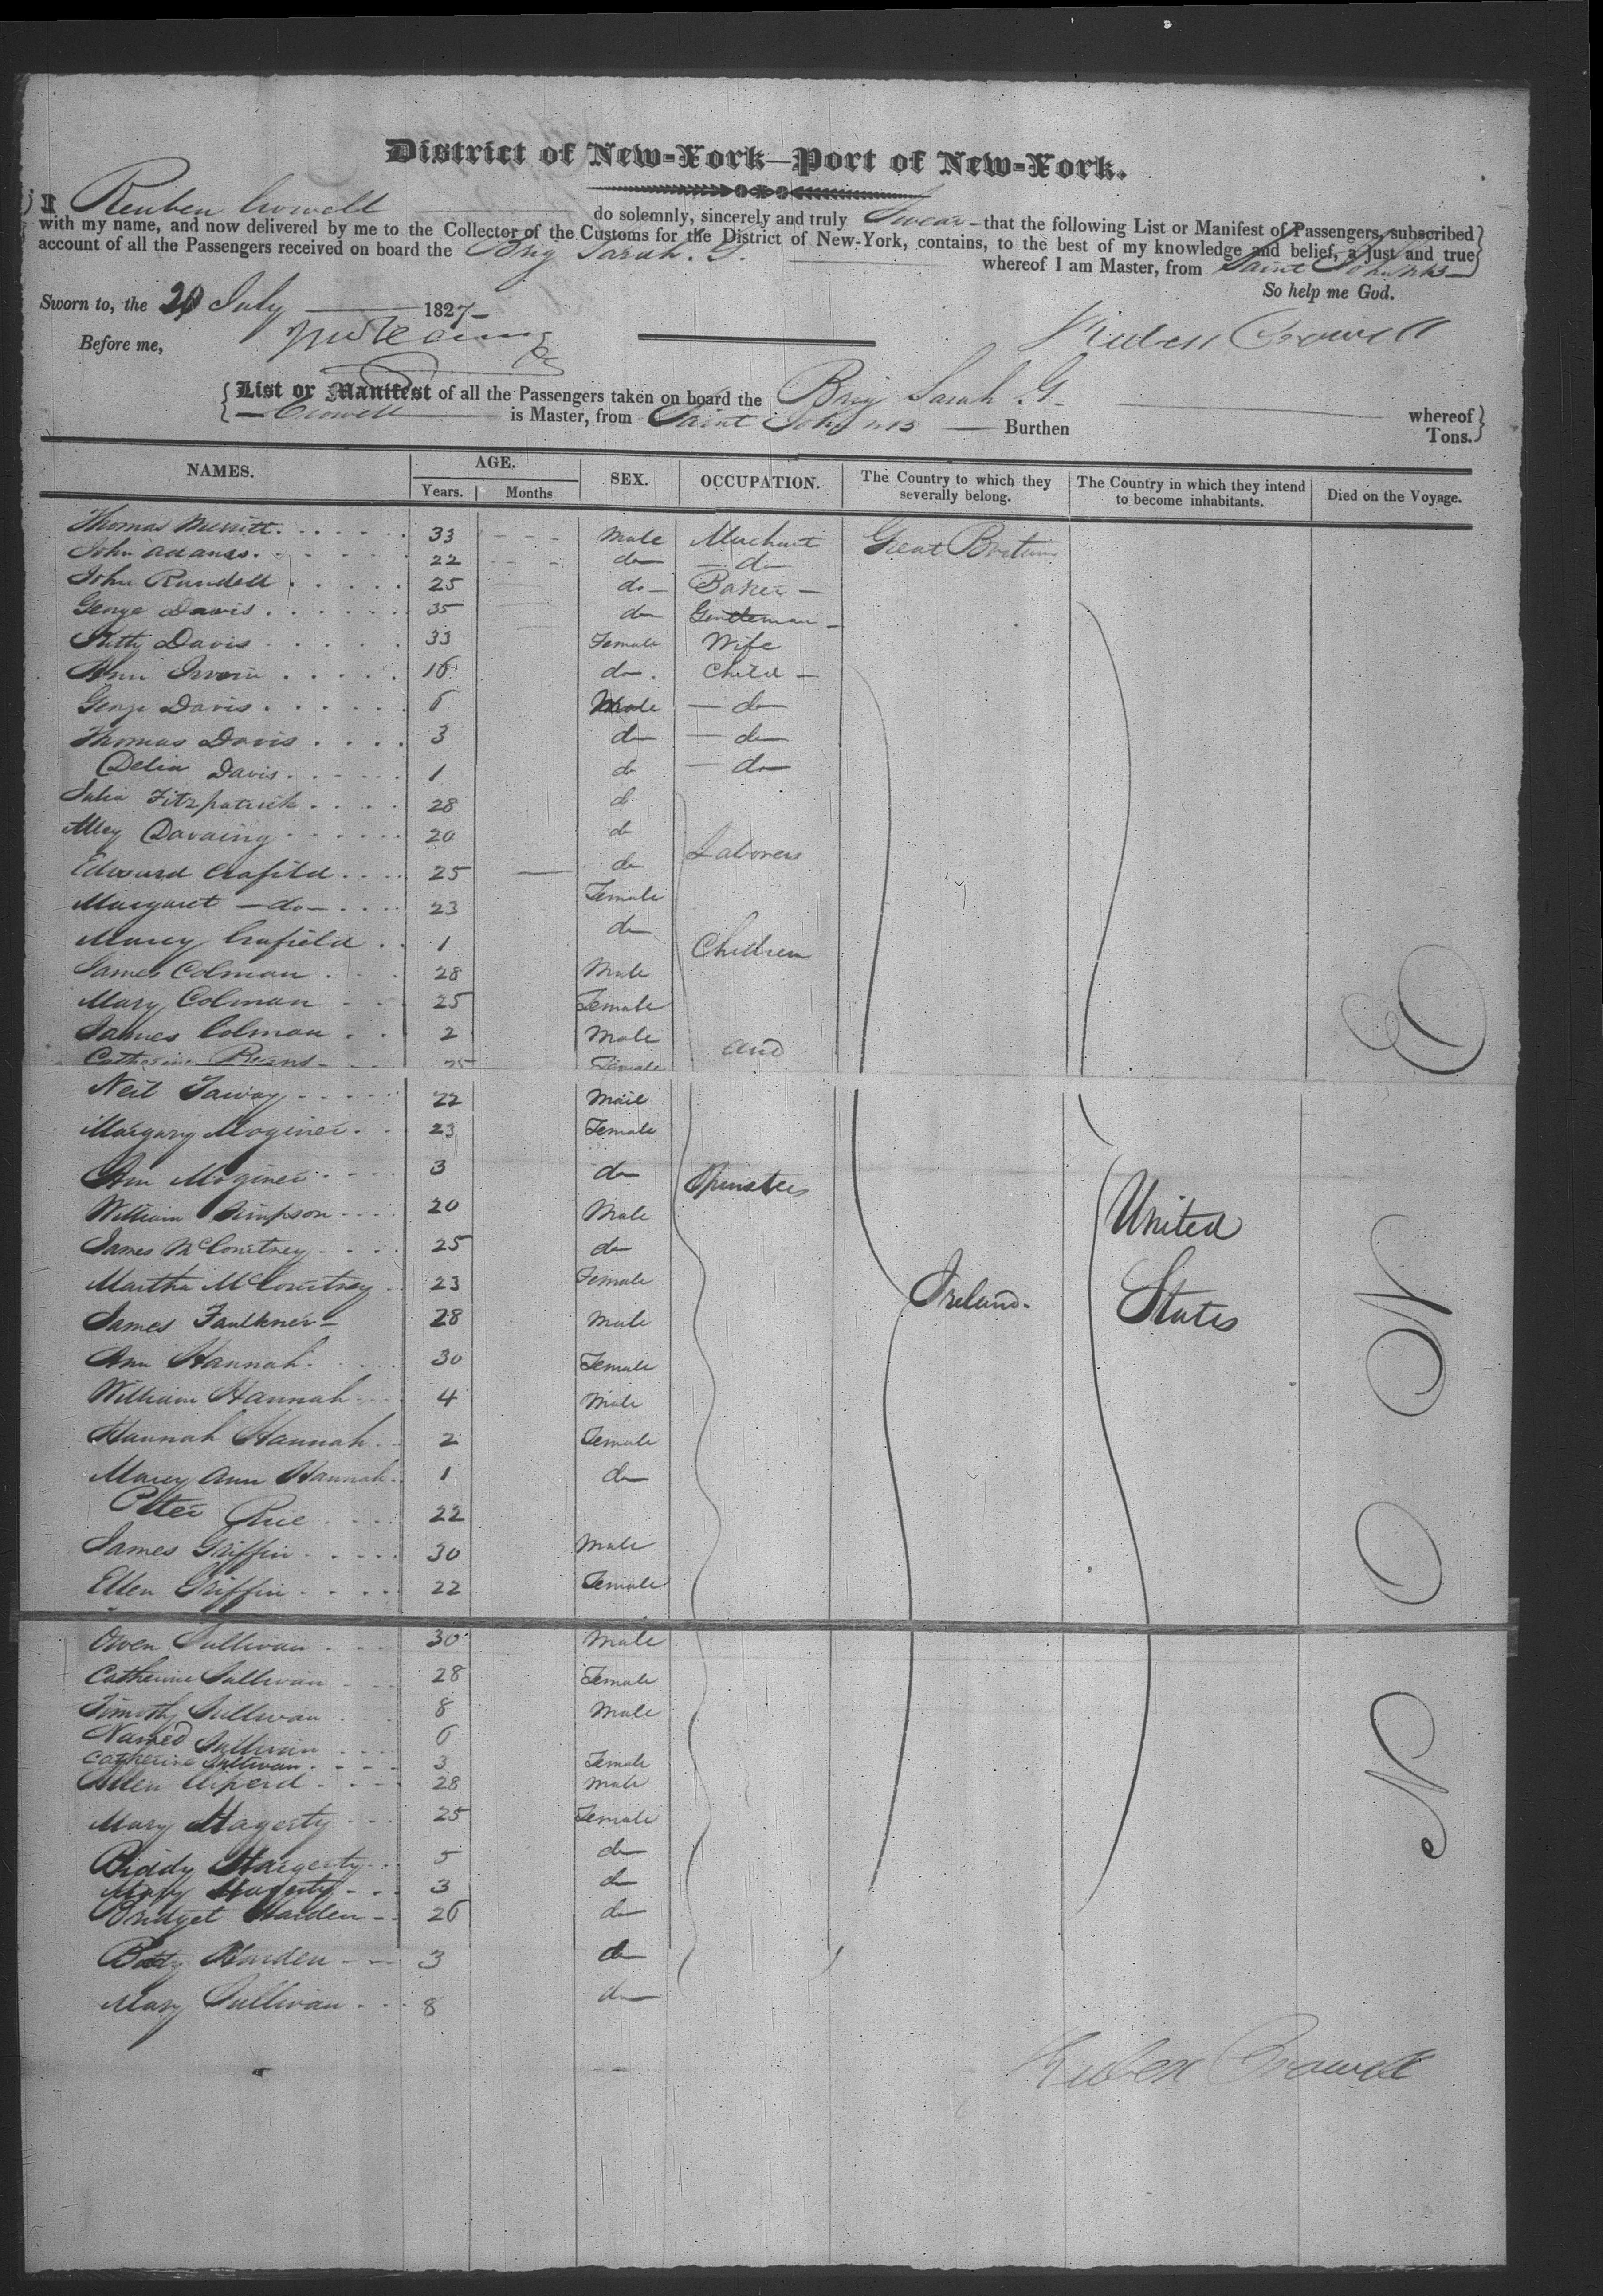 District of New-York—Port of New-York.
I Reuben Crowell do solemnly, sincerely and truly Swear - that the following List or Manifest of Passengers, subscribed
with my name, and now delivered by me to the Collector of the Customs for the District of New-York, contains, to the best of my knowledge and belief, a just and true
account of all the Passengers received on board the Brig Sarah. G. whereof I am Master, from Saint Johns NB
So help me God.
Sworn to, the 20 July 1827-
Before me,
Reuben Crowell
List or Manifest of all the Passengers taken on board the Brig Sarah G. whereof
Crowell is Master, from Saint Johns NB Burthen Tons.
NAMES. AGE. SEX. OCCUPATION. The Country to which they severally belong. The Country in which they intend to become inhabitants. Died on the Voyage.
Years. Months
Thomas Merritt. 33 Male Merchant Great Britain
John Adams. 22 do do
John Rundell 25 do Baker
George Davis. 35 do Gentleman
Kitty Davis 33 Female Wife
Ann Irvin 16 do. Child
George Davis. 6 Male do
Thomas Davis 3 do do
Delia Davis. 1 do do
Julia Fitzpatrick 28 do
20 do Laborers
Edward Crafild 25 do
Margaret do 23 Female
Marey Crafield 1 do Children
James Colman 28 Male
Mary Colman 25 Female
James Colman 2 Male and
Catherine 25 Female
Neil 22 Male
Margary Moginer 23 Female
Ann Moginer 3 do Spinsters
William Simpson 20 Male United
James McCourtney 25 do
Martha McCourtney 23 Female Ireland.
James Faulkner 28 Male States
Ann Hannah. 30 Female
William Hannah 4 Male
Hannah Hannah. 2 Female
Marey Ann Hannah. 1 do
Peter Rice 22
James Griffin 30 Male
Ellen Griffin 22 Female
Owen Sullivan 30 Male
Catherine Sullivan 28 Female
Timothy Sullivan 8 Male
Sullivan 6
Catherine Sullivan 3 Female
Allen 28 Male
Mary Hagerty 25 Female
Biddy Hargerty 5 do
Mary Hagerty 3 do
Bridget Harden 26 do
Betty Harden 3 do
Mary Sullivan 8 do
NONE
Reuben Crowell